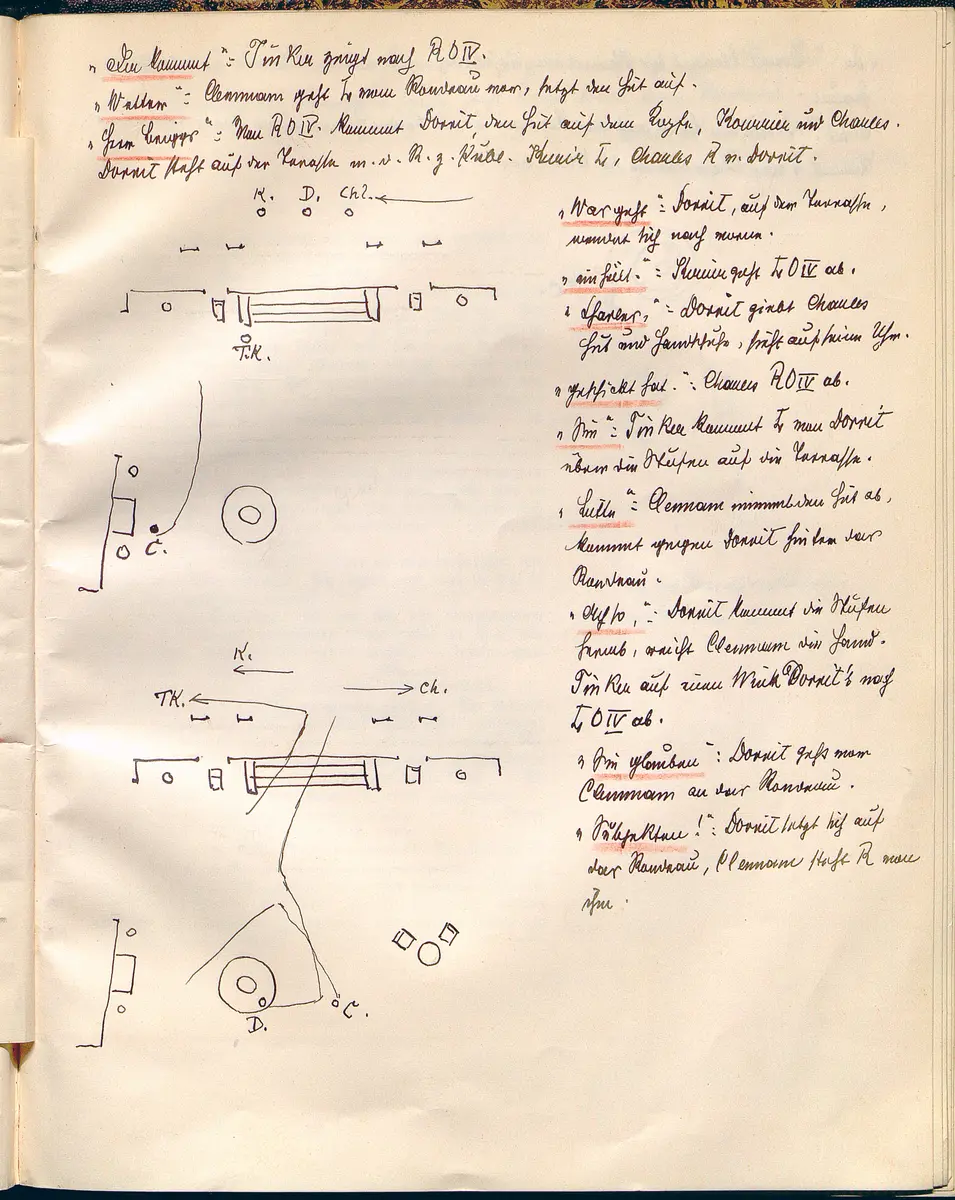 „Der kommt“: Tinker zeigt nach R O IV.
„Wetter“: Clennam geht L vom Rondeau vor, setzt den Hut auf.
„Herr Briggs“: Von R O IV. kommt Dorrit, den Hut auf dem Kopfe, Kourrier und Charles.
Dorrit steht auf der Terrasse m. d. R. z. Publ. Kurir L, Charles R v. Dorrit.
K. D. Chl.
T.K.
C.
„Was geht“: Dorrit, auf der Terrasse,
wendet sich nach vorne.
„ “: Kurier geht L O IV ab.
„Charles,“: Dorrit giebt Charles
Hut und Handschuhe, sieht auf seine Uhr.
„geschickt hat.“: Charles R O IV ab.
„Sie“: Tinker kommt L von Dorrit
über die Stufen auf die Terrasse.
„Bitte“: Clennam nimmt den Hut ab,
kommt gegen Dorrit hinter das
Rondeau.
„Ach so,“: Dorrit kommt die Stufen
herab, reicht Clennam die Hand.
Tinker auf einen Wink Dorrit's nach
L O IV ab.
„Sie glauben“: Dorrit geht vor
Clennam an das Rondeau.
„Subjekten!“: Dorrit setzt sich auf
das Rondeau, Clennam steht R von
ihm.
K.
TK.
Ch.
D.
C.